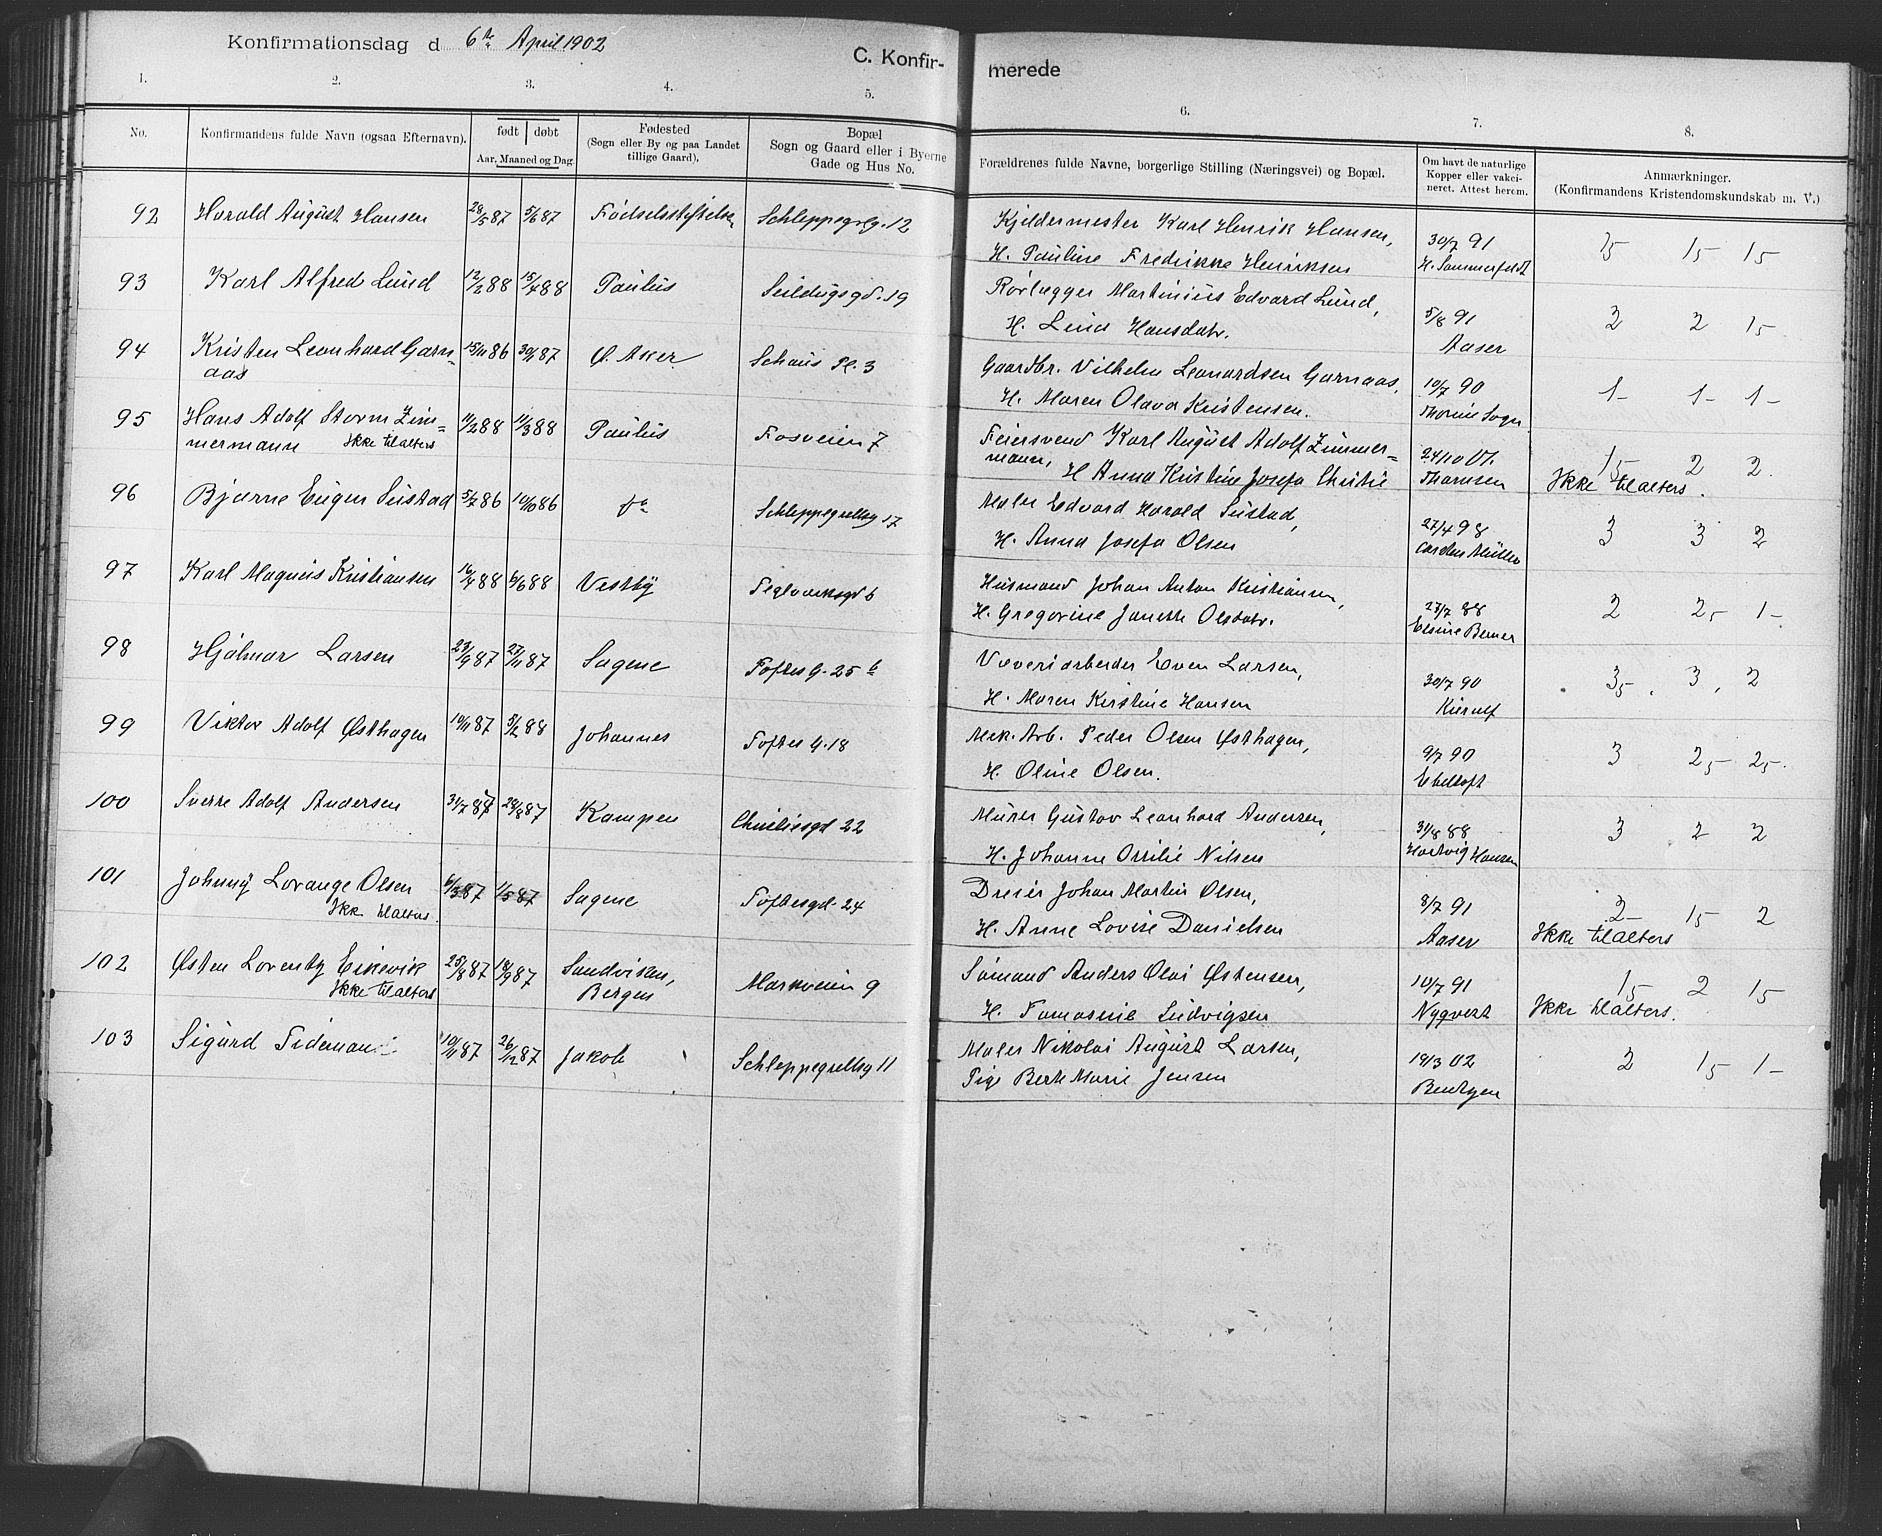 Konfirmationsdag d 6te April 1902
C. Konfir- merede
1. 2. 3. 4. 5. 6. 7. 8.
No. Konfirmandens fulde Navn (ogsaa Efternavn). født døbt Aar, Maaned og Dag. Fødested (Sogn eller By og paa Landet tillige Gaard). Bopæl Sogn og Gaard eller i Byerne Gade og Hus No. Forældrenes fulde Navne, borgerlige Stilling (Næringsvei) og Bopæl. Om havt de naturlige Kopper eller vakcineret. Attest herom. Anmærkninger. (Konfirmandens Kristendomskundskab m. V.)
92 Harald August Hansen 28/5 87 5/6 87 Fødselsstiftelse Schleppegrlg. 12 Kjeldermester Karl Henrik Hansen, 30/7 91 15 15
H. Pauline Fredrikke Henriksen H. Sommerfeldt
93 Karl Alfred Lund 12/2 88 15/4 88 Paulus Seildugsgd. 19 Rørlægger Martinius Edvard Lund, 5/8 91 2 2 15
H. Lina Hansdatr. Aaser
94 Kristen Leonhard Garn= 15/11 86 30/1 87 Ø. Aker Schous Pl. 3 Gaardbr. Vilhelm Leonardsen Garnaas, 10/7 90 1- 1- 1-
aas H. Maren Olava Kristensen.
95 Hans Adolf Storm Zim= 11/2 88 11/3 88 Paulus Fosveien 7 Feiersvend Karl August Adolf Zimmer= 24/10 01. 15 2 2.
mermann Ikke tilalters mann, H Anna Kristine Josefa Christie Ikke tilalters.
96 Bjarne Eugen Sustad 5/7 86 10/10 86 do Schleppegrellsg 17 Maler Edvard Harald Sustad, 27/4 98 3 3 2
H. Anna Josefa Olsen Carsten Müller
97 Karl Magnus Kristiansen 16/4 88 6/6 88 Vestby Teglverksgd 6 Husmand Johan Anton Kristiansen, 27/7 88 2 25 1-
H. Gregorine Janette Olsdatr.
98 Hjalmar Larsen 23/9 87 27/11 87 Sagene Toftes G. 25 b Væveriarbeider Even Larsen, 30/7 90 35 3 2
H. Maren Kirstine Hansen Kierulf
99 Viktor Adolf Østhagen 10/11 87 5/2 88 Johannes Toftes G. 18 Mek. Arb. Peder Olsen Østhagen, 9/7 90 3 25 25.
H. Oline Olsen. Ebeltoft
100 Sverre Adolf Andersen 31/7 87 28/8 87 Kampen Christiesgd 22 Murer Gustav Leonhard Andersen, 31/8 88 3 2 2
H. Johanne Ottilie Nilsen Hartvig Hansen
101 Johnny Lorange Olsen 6/3 87 1/5 87 Sagene Toftesgd. 24 Dreier Johan Martin Olsen, 8/7 91 2- 15 2
Ikke tilalters. H. Anne Lovise Danielsen Aaser Ikke tilalters
102 Østen Lorentz Eikevik 25/8 87 18/9 87 Sandviken, Markveien 9 Sømand Anders Olai Østensen, 10/7 91 15 2 15
Ikke tilalters Bergen H. Tomasine Ludvigsen Nyqvest Ikke tilalters.
103 Sigurd Tideman 10/11 87 26/12 87 Jakob Schleppegrellsg 11 Maler Nikolai August Larsen, 19/3 02 2 15 1-
Pige Berte Marie Jensen Bentzen